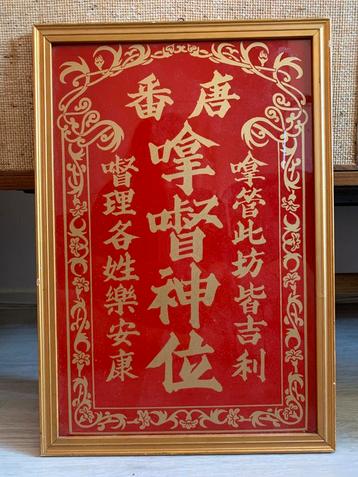 唐番
嗱管此坊皆吉利
嗱督神位
督理各姓樂安康